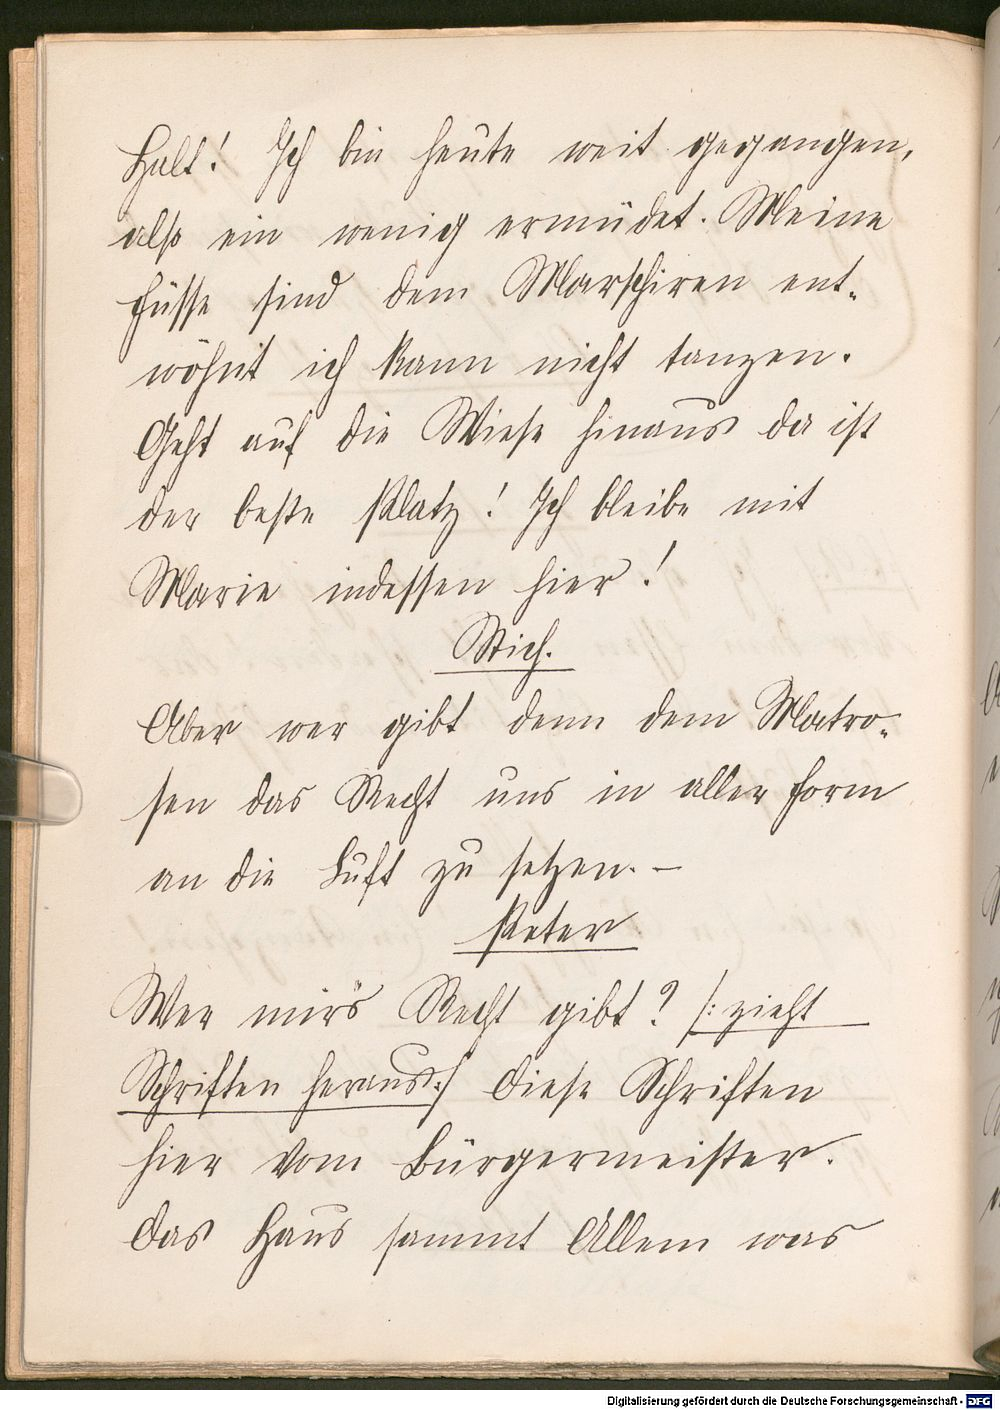 Halt! Ich bin heute weit gegangen,
also ein wenig ermüdet. Meine
Füsse sind dem Marschiren ent-
wöhnt ich kann nicht tanzen.
Geht auf die Wiese hinaus da ist
der beste Platz! Ich bleibe mit
Marie indessen hier!
Stich.
Aber wer gibt denn dem Matro-
sen das Recht uns in aller Form
an die Luft zu setzen. –
Peter
Wer mir's Recht gibt? /: zieht
Schriften heraus :/ Diese Schriften
hier vom Bürgermeister.
Das Haus sammt Allem was
Digitalisierung gefördert durch die Deutsche Forschungsgemeinschaft - DFG